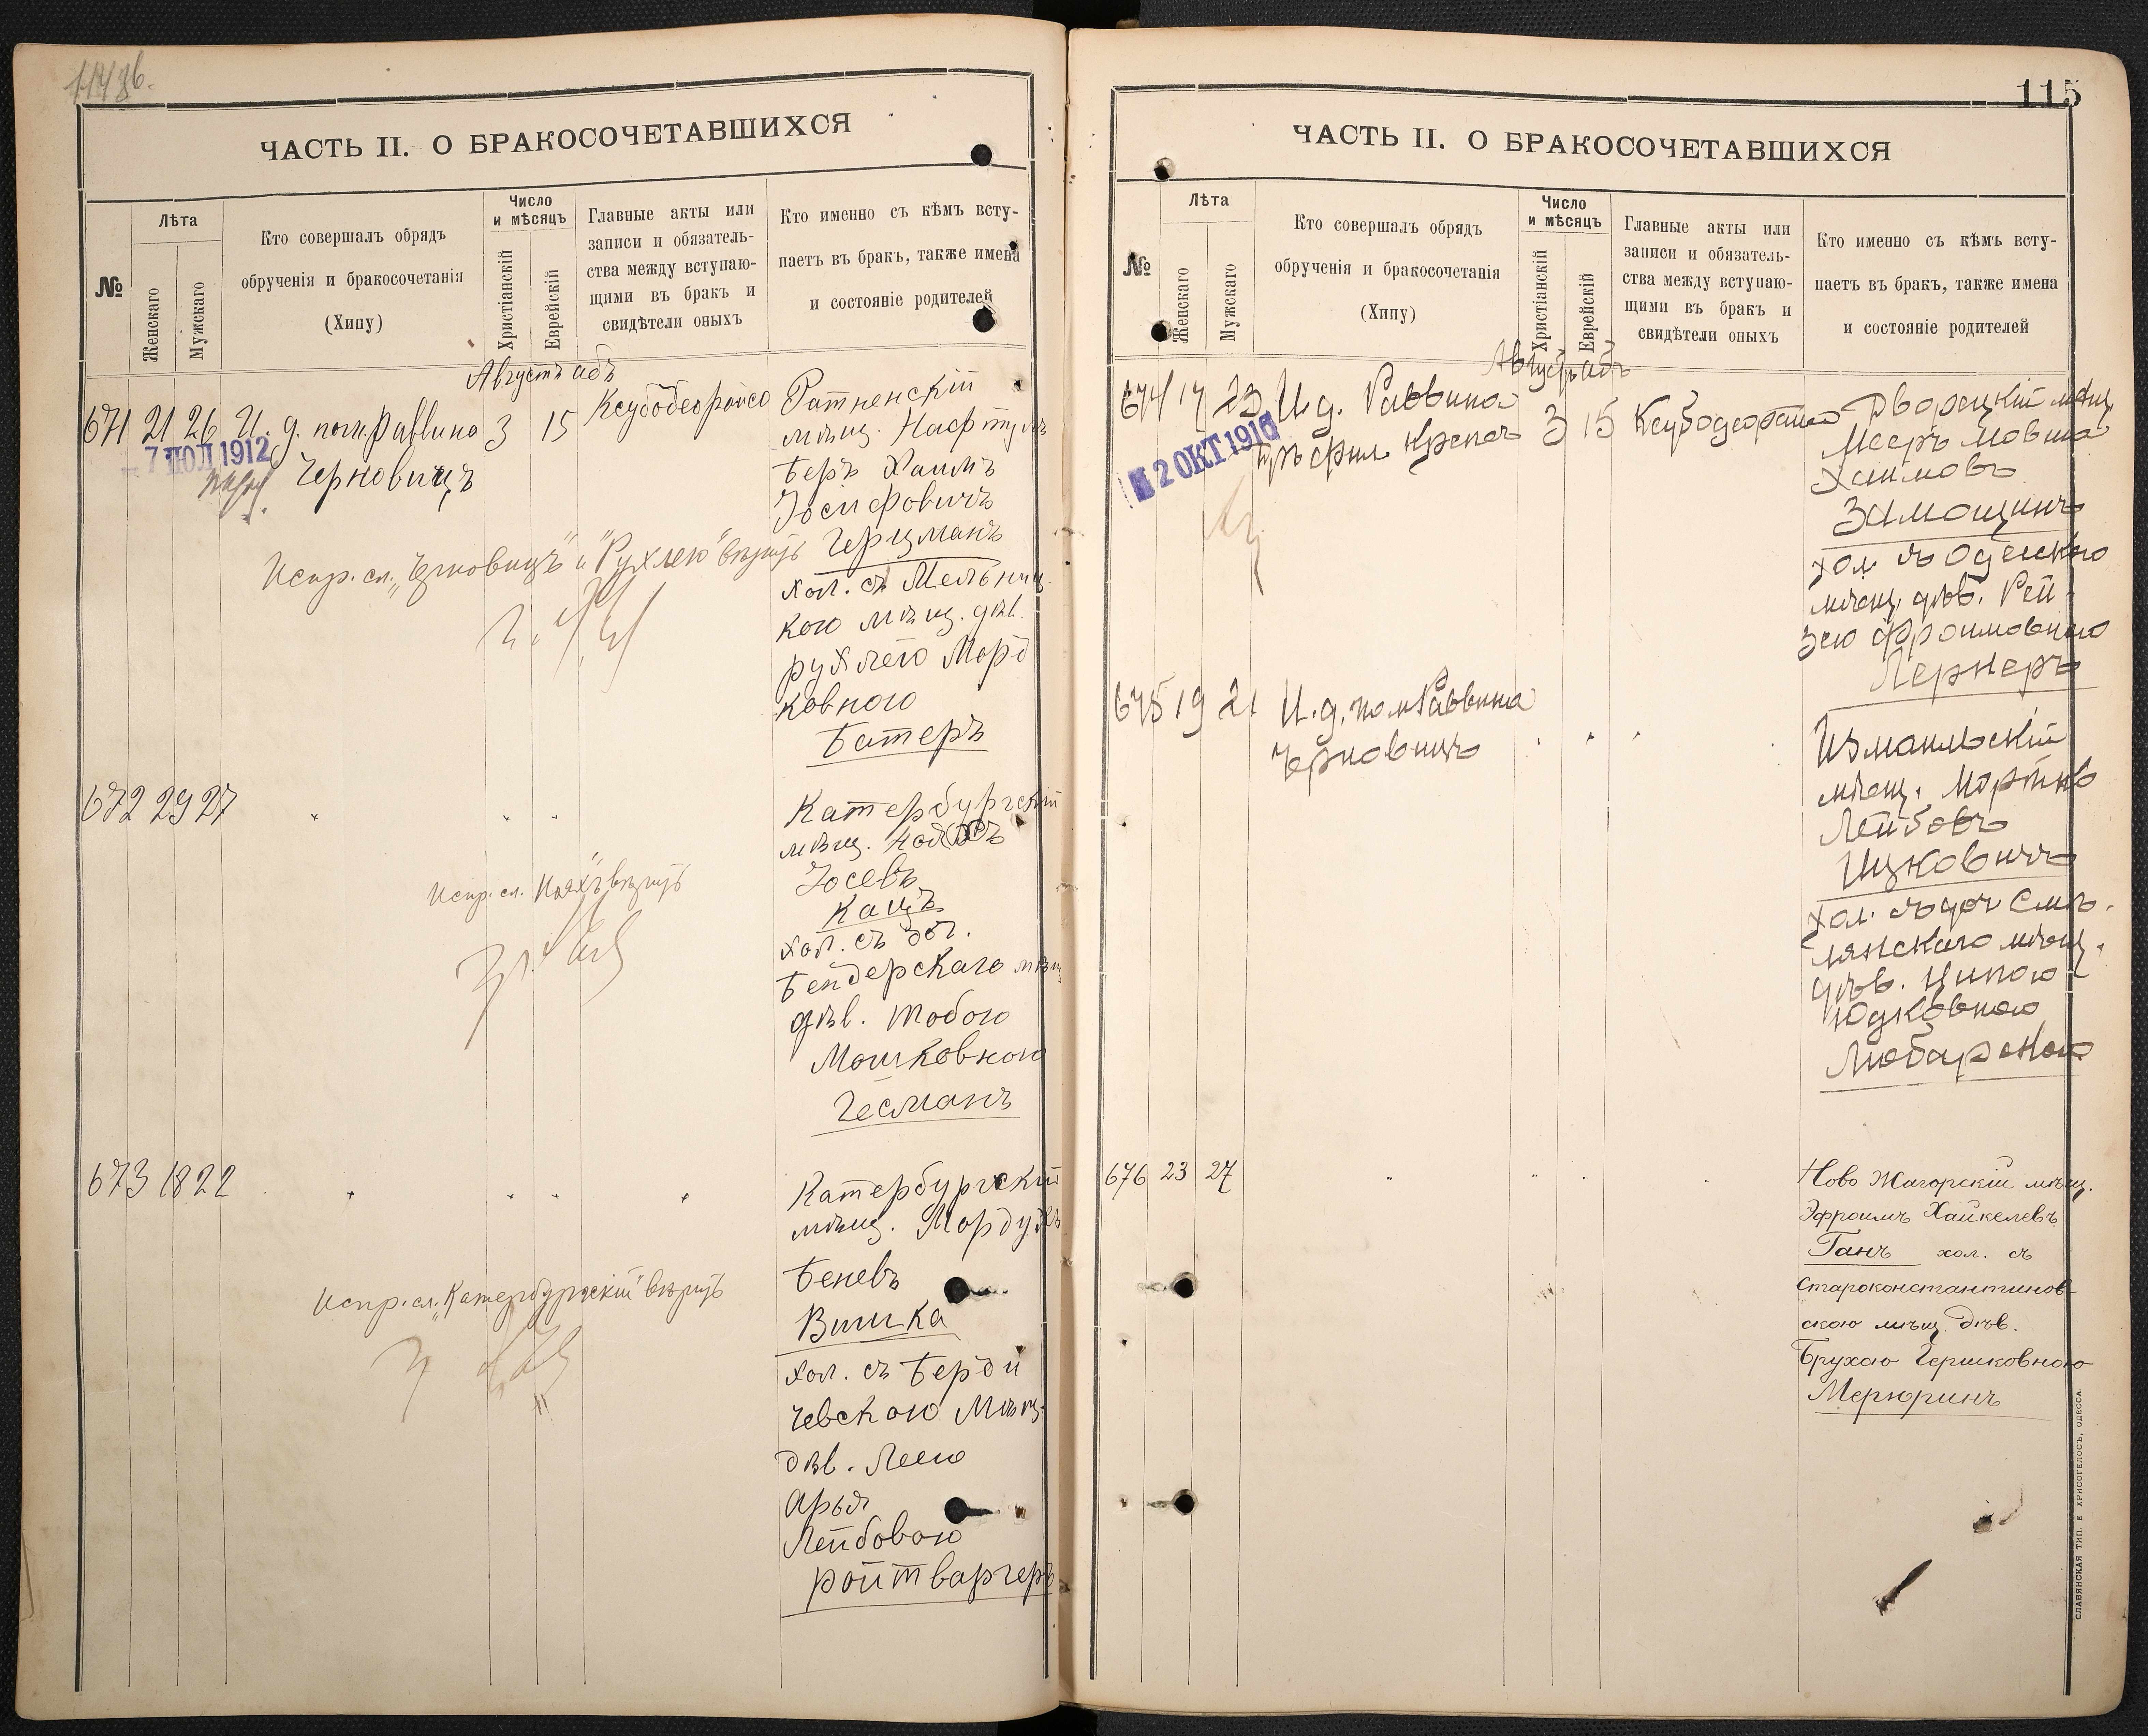 ЧАСТЬ II. О БРАКОСОЧЕТАВШИХСЯ
№
Лѣта
Женскаго
Мужскаго
Кто совершалъ обрядъ
обрученія и бракосочетанія
(Хипу)
Число
и мѣсяцъ
Христіанскій
Еврейскій
Главные акты или
записи и обязатель-
ства между вступаю-
щими въ бракъ и
свидѣтели оныхъ
Кто именно съ кѣмъ всту-
паетъ въ бракъ, также имена
и состояніе родителей
Августъ абъ
671 21 26 И. д. пом. Раввина 3 15
7 ІЮЛ 1912
Черновицъ
Ратненскій
мѣщ. Нафтулъ
Беръ Хаимъ
Іосифовичъ
Герцманъ
хол. съ Мельниц-
кою мѣщ. дѣв.
Рухлею Морд
ковною
Батеръ
Испр. сл. „Черновицъ" и „Рухлею" вѣрить
672 29 27 " " "
Катербургскій
мѣщ.
Іосевъ
Кацъ
хол. съ
Бендерскаго мѣщ
дѣв. Тобою
Мошковною
Гесманъ
Испр. сл. вѣрить
673 18 22 " " " "
Катербургскій
мѣщ. Мордухъ
Беневъ
Вишка
хол. съ Берди
чевскою мѣщ.
дѣв. Леею
Арья
Лейбовою
Ройтваргеръ
Испр. сл. „Катербургскій" вѣрить
115
ЧАСТЬ II. О БРАКОСОЧЕТАВШИХСЯ
№
Лѣта
Женскаго
Мужскаго
Кто совершалъ обрядъ
обрученія и бракосочетанія
(Хипу)
Число
и мѣсяцъ
Христіанскій
Еврейскій
Главные акты или
записи и обязатель-
ства между вступаю-
щими въ бракъ и
свидѣтели оныхъ
Кто именно съ кѣмъ всту-
паетъ въ бракъ, также имена
и состояніе родителей
Августъ абъ
674 17 23 И. д. Раввина 3 15
2 ОКТ 1916
Дворецкій мѣщ
Мееръ Мовша
Хаимовъ
Замощинъ
хол. съ Одесскою
мѣщ. дѣв. Рей
зею Фроимовною
Лернеръ
675 19 21 И. д. пом Раввина " " "
Черновицъ
Измаильскій
мѣщ. Мортко
Лейбовъ
Ицковичъ
хол. съ доч Смѣ-
лянскаго мѣщ.
дѣв. Ципою
Юдковною
Любарскою
676 23 27 " " " "
Ново Жагорскій мѣщ.
Эфроимъ Хайкелевъ
Ганъ хол. съ
Староконстантинов-
скою мѣщ. дѣв.
Брухою Гершковною
Мерюринъ
СЛАВЯНСКАЯ ТИП. Е ХРИСОГЕЛОСЪ, ОДЕССА.